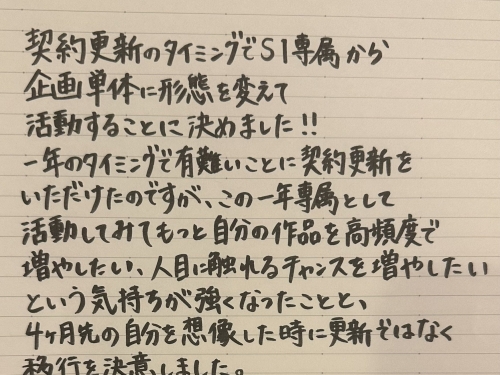 契約更新のタイミングでS1専属から
企画単体に形態を変えて
活動することに決めました!!
一年のタイミングで有難いことに契約更新を
いただけたのですが、この一年専属として
活動してみてもっと自分の作品を高頻度で
増やしたい、人目に触れるチャンスを増やしたい
という気持ちが強くなったことと、
4ヶ月先の自分を想像した時に更新ではなく
移行を決意しました。